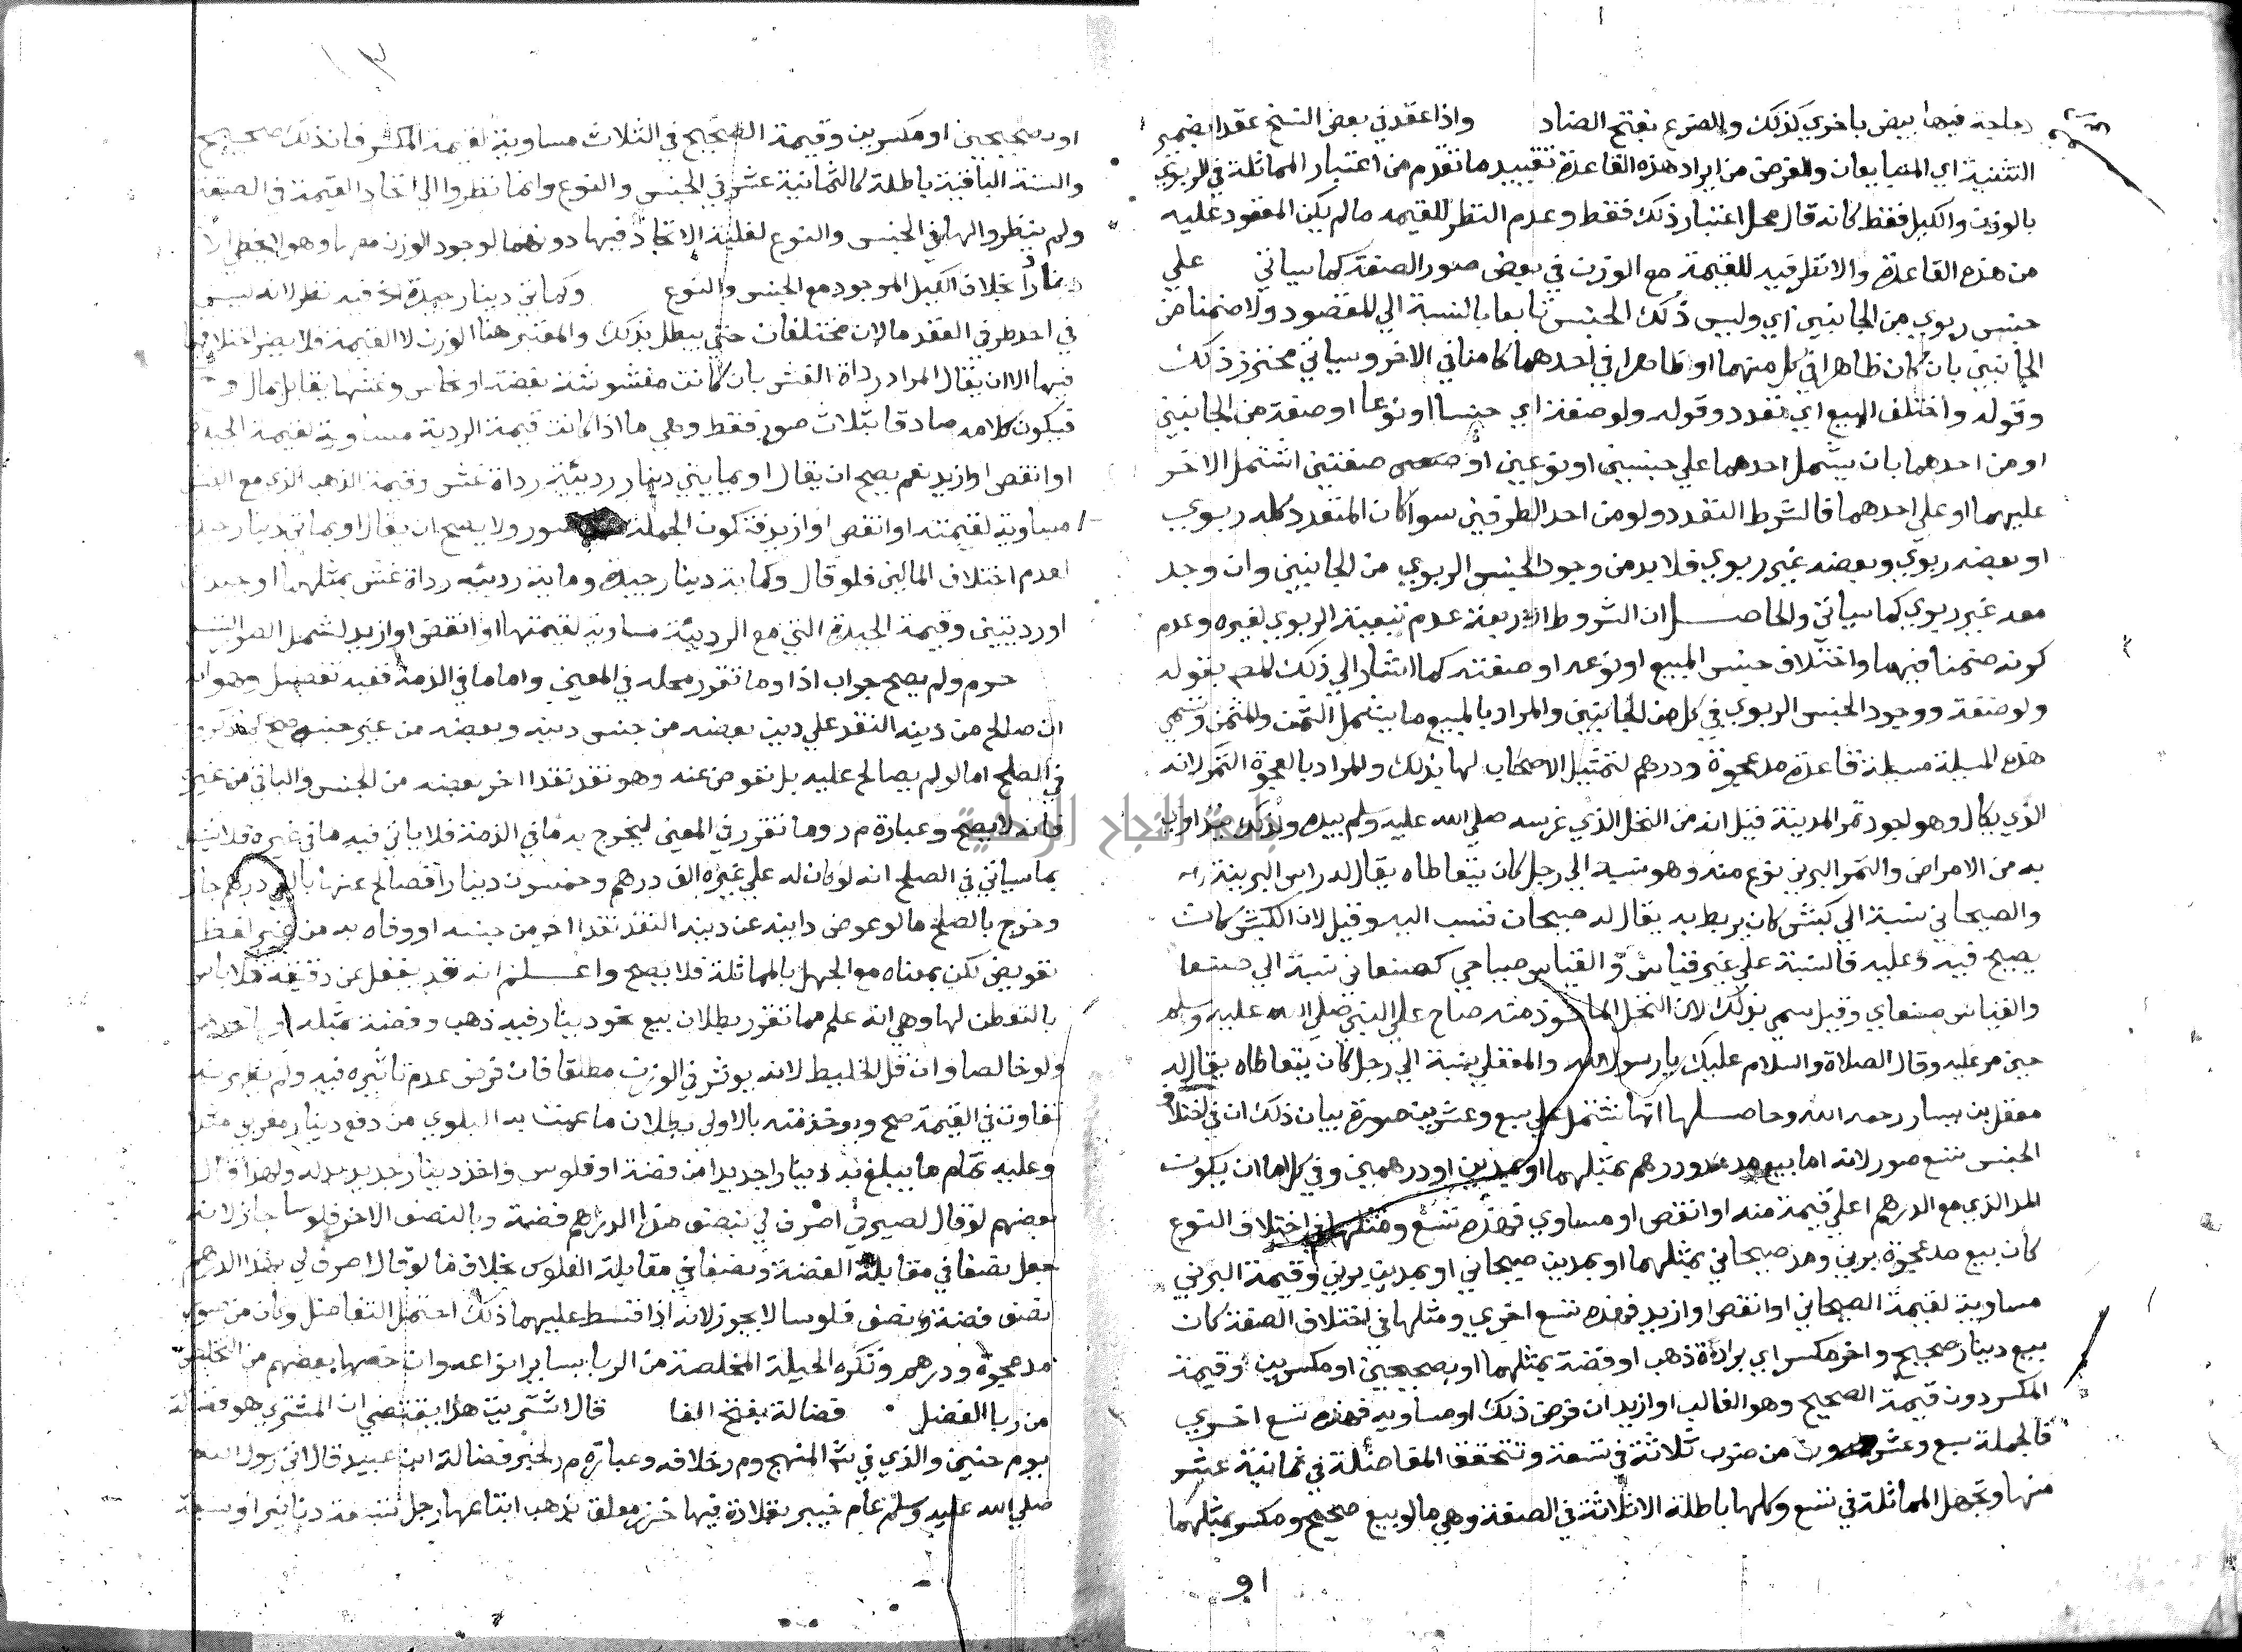 دجاجة فيها بيض باخري كذلك والضرع بفتح الضاد واذا عقد في بعض النسخ عقدا بضمير
التثنية اي المتبايعان والغرض من ايراد هذه القاعدة تقييد ما تقدم من اعتبار المماثلة في الربوي
بالوزن والكيل فقط كانه قال محل اعتبار ذلك فقط وعدم النظر للقيمه ما لم يكن المعقود عليه
من هذه القاعدة والا نظر فيه للقيمة مع الوزن في بعض صور الصفقة كما سياتي علي
جنس ربوي من الجانبين اي وليس ذلك الجنس تابعا بالنسبة الي المقصود ولا ضمنا من
الجانبين بان كان ظاهرا في كل منهما او ظاهرا في احدهما كامنا في الاخر وسياتي محترز ذلك
وقوله واختلف المبيع اي تعدد وقوله ولو صفة اي جنسا او نوعا او صفة من الجانبين
او من احدهما بان يشمل احدهما علي جنسين او نوعين او صفتين اشتمل الاخر
عليهما او علي احدهما فالشرط التعدد ولو من احد الطرفين سوا كان المتعدد كله ربوي
او بعضه ربوي وبعضه غير ربوي فلا بد من وجود الجنس الربوي من الجانبين وان وجد
معه غير ربوي كما سياتي والحاصل ان الشروط اربعة عدم تبعية الربوي لغيره وعدم
كونه ضمنا فيهما واختلاف جنس المبيع او نوعه او صفته كما اشار الي ذلك المص بقوله
ولو صفة ووجود الجنس الربوي في كل من الجانبين والمراد بالمبيع ما يشمل الثمن والمثمن وتسمي
هذه المسيلة مسيلة قاعدة مد عجوة ودرهم لتمثيل الاصحاب لها بذلك والمراد بالعجوة التمر لانه
الذي يكال وهو اجود تمر المدينة قيل انه من النخل الذي غرسه صلي الله عليه وسلم بيده ولذلك يتداوي
به من الامراض والتمر البرني نوع منه وهو نسبة الي رجل كان يتعاطاه يقال له راس البربنة
والصيحاني نسبة الي كبش كان يربط به يقال له صيحان فنسب اليه وقيل لان الكبش كان
يصيح فيه وعليه فالنسبة علي غير قياس والقياس صياحي كصنعاني نسبة الي صنعا
والقياس صنعاي وقيل سمي بذلك لان النخل الماخوذ منه صاح علي النبي صلي الله عليه وسلم
حين مر عليه وقال الصلاة والسلام عليك يا رسول الله والمعقلي نسبة الي رجل كان يتعاطاه يقال له
معقل بن يسار رحمه الله وحاصلها انها تشتمل علي سبع وعشرين صورة بيان ذلك ان في اختلاف
الجنس تسع صور لانه اما بيع مد ودرهم بمثلهما او بمدين او درهمين وفي كل اما ان يكون
المد الذي مع الدرهم اعلي قيمة منه او انقص او مساوي فهذه تسع ومثلها في اختلاف النوع
كان بيع مد عجوة برني ومد صيحاني بمثلهما او بمدين صيحاني او بمدين برني وقيمة البرني
مساوية لقيمة الصيحاني او انقص او ازيد فهذه تسع اخري ومثلها في اختلاف الصفة كان
بيع دينار صحيح واخر مكسر اي برادة ذهب او فضة بمثلهما او بصحيحين او مكسرين وقيمة
المكسر دون قيمة الصحيح وهو الغالب او ازيد ان فرض ذلك او مساوية فهذه تسع اخري
فالجملة سبع وعشرون من ضرب ثلاثة في تسعة وتتحقق المفاضلة في ثمانية عشر
منها وتجهل المماثلة في تسع وكلها باطلة الا ثلاثة في الصفة وهي ما لو بيع صحيح ومكسر بمثلهما
او
او بصحيحين او مكسرين وقيمة الصحيح في الثلاث مساوية لقيمة المكسر فان ذلك صحيح
والستة الباقية باطلة كالثمانية عشر في الجنس والنوع وانما نظروا الي اتحاد القيمة في الصفة
ولم ينظروا اليها في الجنس والنوع لغلبة الاتحاد فيها دونهما لوجود الوزن
بخلاف الكيل الموجود مع الجنس والنوع وكماتي دينار جيدة فيه نظر لانه ليس
في احد طرفي العقد مالان مختلفان حتي يبطل بذلك والمعتبر هنا الوزن لا القيمة فلا يضر اختلاف
فيها الا ان يقال المراد رداة الغش بان كانت مغشوشة بفضة او نحاس وغشها يقابل بمال
فيكون كلامه صادقا بثلاث صور فقط وهي ما اذا كانت قيمة الردية مساوية لقيمة الجيدة
او انقص او ازيد نعم يصح ان يقال او بمايتي دينار رديئة رداة غش وقيمة الذهب الذي مع الغش
مساوية لقيمته او انقص او ازيد فتكون الجملة صور ولا يصح ان يقال او بماتي دينار جيدة
لعدم اختلاف المالين فلو قال وكماية دينار جيدة وماية رديئه رداة غش بمثلهما او جيدتين
او رديتين وقيمة الجيدة التي مع الرديئة مساوية لقيمتها او انقص او ازيد لشمل الصور التسع
حرم ولم يصح جواب اذا وما تقرر محله في المعين واما ما في الذمة ففيه تفصيل وهو انه
ان صالح من دينه النقد علي دين بعضه من جنس دينه وبعضه من غير جنسه صح
في الصلح اما لو لم يصالح عليه بل تعوض عنه وهو نقد نقدا اخر بعضه من الجنس والباقي من غيره
فانه لا يصح وعبارة م ر وما تقرر في المعين ليخرج به ما في الذمة فلا ياتي فيه ما في غيره
بما سياتي في الصلح انه لو كان له علي غيره الف درهم وخمسون دينارا فصالح عنها بالفي درهم جاز
وخرج بالصلح ما لو عوض داينه عن دينه النقد نقدا اخر من جنسه او وفاه به من غير لفظ
تعويض لكن بمعناه مع الجهل بالمماثلة فلا يصح واعلم انه قد يغفل عن دقيقة فلا باس
بالتفطن لها وهي انه علم مما تقرر بطلان بيع نحو دينار فيه ذهب وفضة بمثله او
ولو خالصا وان قل الخليط لانه يوثر في الوزن مطلقا فان فرض عدم تاثيره فيه ولم يظهر به
تفاوت في القيمة صح ويوخذ منه بالاولي بطلان ما عمت به البلوي من دفع دينار مغربي مثلا
وعليه تمام ما يبلغ به دينارا جديدا من فضة او فلوس واخذ دينار جديد بدله ولهذا قال
بعضهم لو قال لصيرفي اصرف لي بنصف هذا الدرهم فضة وبالنصف الاخر فلوسا جاز لانه
جعل نصفا في مقابلة الفضة ونصفا في مقابلة الفلوس بخلاف ما لو قال اصرف لي بهذا الدرهم
نصف فضة ونصف فلوسا لا يجوز لانه اذا قسط عليهما ذلك احتمل التفاضل وكان من صور
مد عجوة ودرهم وتكره الحيلة المخلصة من الربا بساير انواعه وان خصها بعضهم من التخلص
من ربا الفضل فضالة بفتح الفا قال اشتريت هذا يقتضي ان المشتري هو فضالة
يوم حنين والذي في شم المنهج وم ر خلافه وعبارة م ر لخبر فضالة ابن عبيد قال اتي رسول الله
صلي الله عليه وسلم عام خيبر بقلادة فيها خرز معلق بذهب ابتاعها رجل بتسعة دنانير او سبعة